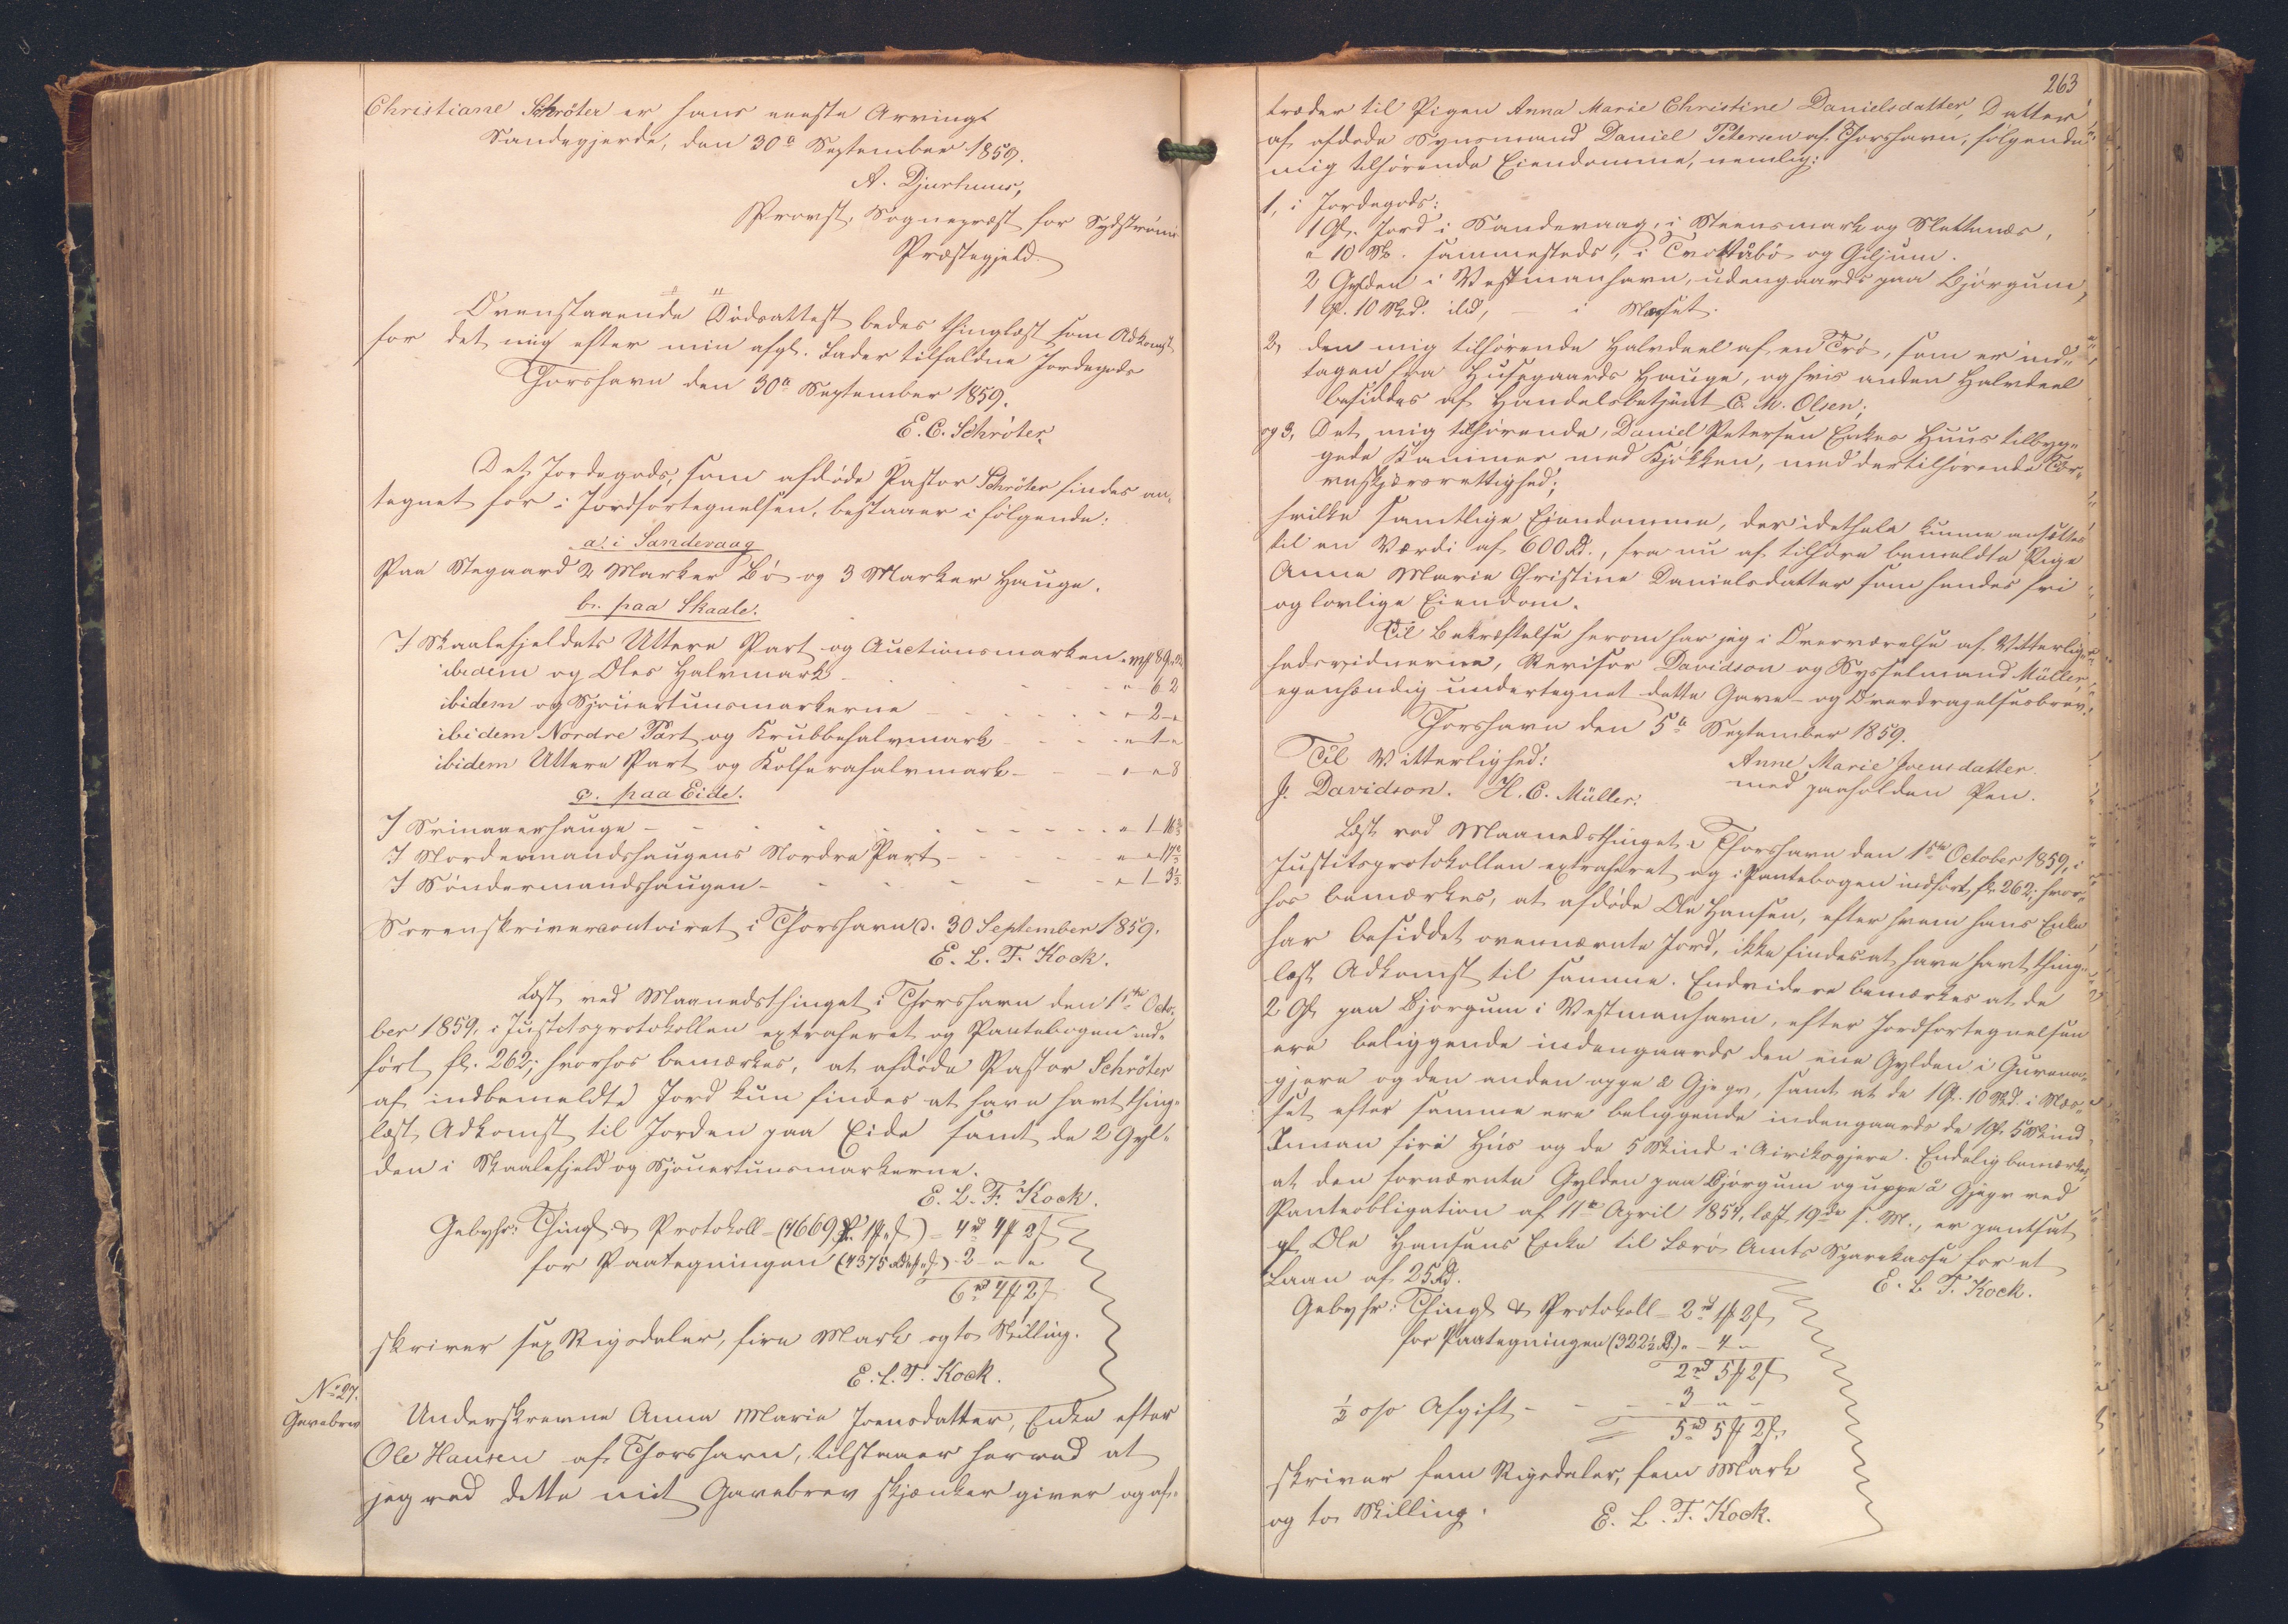 Christiane Schröter er hans eneste Arving.
Sandegjerde, den 30te September 1859.
A. Djurhuus,
Provst, Sognepræst for Sydstrømø
Præstegjeld.
Ovenstaaende Dødsattest bedes thinglæst som Adkomst
for det mig efter min afgl. Fader tilfaldne Jordegods
Thorshavn den 30te September 1859.
E. C. Schröter.
Det Jordegods, som afdøde Pastor Schröter findes an-
tegnet for i Jordfortegnelsen, bestaaer i følgende:
a. i Sandevaag
Paa Stegaard 2 Marker Bø og 3 Marker Hauge.
b. paa Skaale.
I Skaalefjeldets Uttere Part og Auctionsmarken
ibidem og Oles Halvmark - - - " 6 2
ibidem og Sjouertunsmarkerne - - - " 2 "
ibidem Nordre Part og Krubbehalvmark - - - " 1 "
ibidem Uttere Part og Kolferahalvmark - - - " " 8
c. paa Eide.
I Srinaaerhauge - - - " 1 16⅔
I Nordermandshaugens Nordre Part - - - " " 17⅔
I Søndermandshaugen - - - " 1 3⅓
Sorenskrivercontoiret i Thorshavn d. 30 September 1859.
E. L. F. Kock.
Læst ved Maanedsthinget i Thorshavn den 1ste Octo-
ber 1859, i Justitsprotokollen extraheret og Pantebogen ind-
ført fl. 262; hvorhos bemærkes, at afdøde Pastor Schröter
af indbemeldte Jord kun findes at have havt thing-
læst Adkomst til Jorden paa Eide samt de 2 Gyl-
den i Skaalefjeld og Sjouertunsmarkerne.
E. L. F. Kock.
Gebyhr: Thingl. & Protokoll - (4669 Rd. 1 ß) = 4rd 4 2ß
for Paategningen (4375 Rd) - 2 - " "
6rd 4 2ß
skriver sex Rigsdaler, fire Mark og to Skilling.
E. L. F. Kock.
No 27.
Gavebrev
Underskrevne Anna Maria Joensdatter, Enke efter
Ole Hansen af Thorshavn, tilstaaer herved at
jeg ved dette mit Gavebrev skjænker giver og af-
263
træder til Pigen Anna Marie Christine Danielsdatter, Datter
af afdøde Synsmand Daniel Petersen af Thorshavn, følgende
mig tilhørende Eiendomme, nemlig:
1, i Jordegods:
1 Gl. Jord i Sandevaag, i Steensmark og Slettenæs,
" 10 Sk. sammesteds, i Trøttübø og Giljum.
2 Gylden i Vestmanhavn, udengaards paa Bjørgum,
1 Gl. 10 Skd. ibd, — i Næset.
2, den mig tilhørende Halvdeel af en Trø, som er ind-
tagen fra Husegaards Hauge, og hvis anden Halvdeel
besiddes af Handelsbetjent C. M. Olsen;
og 3, Det mig tilhørende, Daniel Petersen Enkes Huus tilbyg-
gede Kammer med Kjøkken, med dertilhørende Tør-
veskjærsrettighed;
hvilke samtlige Eiendomme, der idethele kunne ansættes
til en Værdi af 600 Rd., fra nu af tilhøre bemeldte Pige
Anne Marie Christine Danielsdatter som hendes fri
og lovlige Eiendom.
Til Bekræftelse herom har jeg i Overværelse af Vitterlig-
hedsvidnerne, Revisor Davidson og Sysselmand Müller,
egenhændig undertegnet dette Gave- og Overdragelsesbrev.
Thorshavn den 5te September 1859.
Til Vitterlighed: Anne Marie Joensdatter
J. Davidson. H. C. Müller. med paaholden Pen.
Læst ved Maanedsthinget i Thorshavn den 1ste October 1859, i
Justitsprotokollen extraheret og i Pantebogen indført fl. 262; hvor-
hos bemærkes, at afdøde Ole Hansen, efter hvem hans Enke
har besiddet ovennævnte Jord, ikke findes at have havt thing-
læst Adkomst til samme. Endvidere bemærkes at de
2 Gl. paa Bjørgum i Vestmanhavn, efter Jordfortegnelsen
ere beliggende indengaards den ene Gylden i Gurena-
gjere og den anden oppe á Gjegv, samt at de 1 Gl. 10 Skd. i Næs-
set efter samme ere beliggende indengaards de 1 Gl. 5 Skind
Innan firi Hús og de 5 Skind i Airiksgjere. Endelig bemærkes,
at den fornævnte Gylden paa Bjørgum og uppe á Gjegv ved
Panteobligation af 11te April 1857, læst 19de s. M., er pantsat
af Ole Hansens Enke til Færø Amts Sparekasse for et
Laan af 25 Rd.
E. L. F. Kock.
Gebyhr: Thingl. & Protokoll = 2rd 1 2ß
for Paategningen (322½ Rd.) " - 4 - "
2rd 5 2ß
½ o/o Afgift - - - 3 - " -
5rd 5 2ß.
skriver fem Rigsdaler, fem Mark
og to Skilling.
E. L. F. Kock.